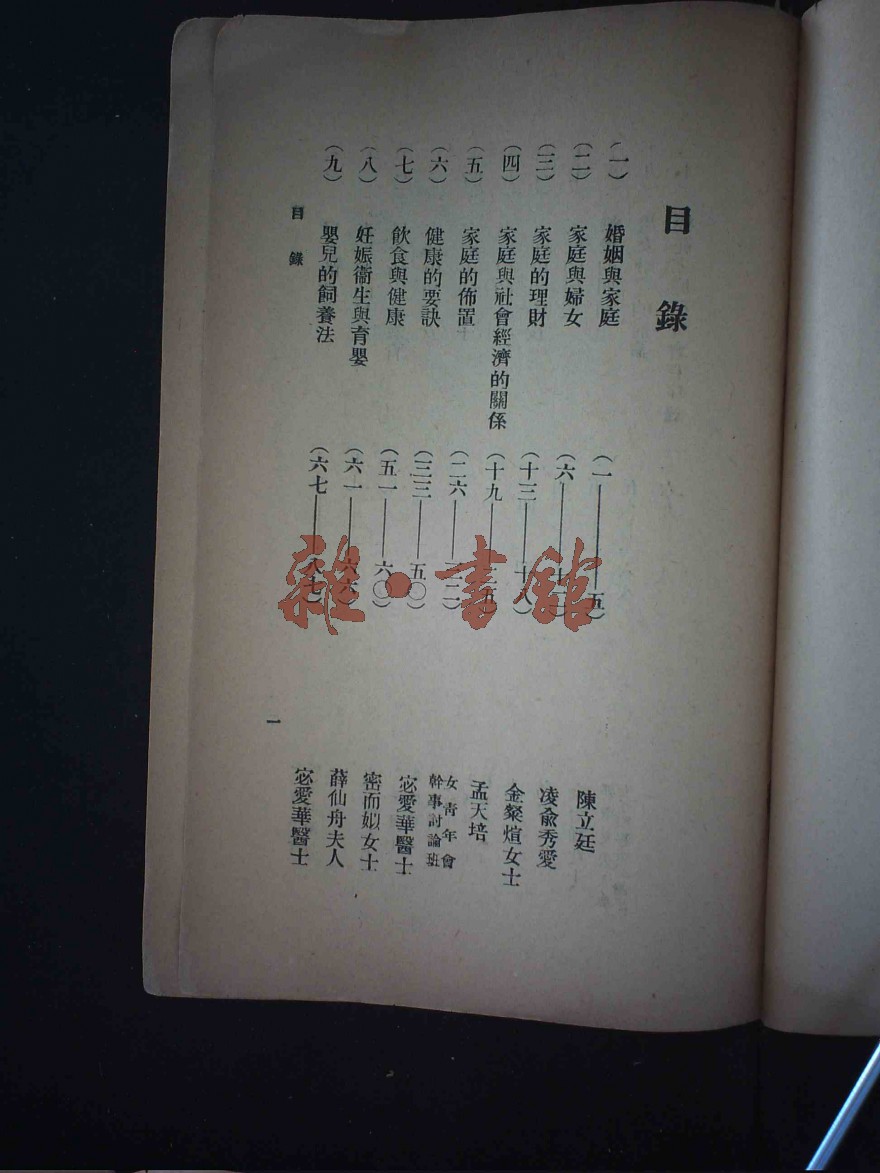 目錄
(一) 婚姻與家庭 (一——五) 陳立廷
(二) 家庭與婦女 (六——十二) 凌俞秀愛
(三) 家庭的理財 (十三——十八) 金粲煊女士
(四) 家庭與社會經濟的關係 (十九——二五) 孟天培
(五) 家庭的佈置 (二六——三二) 女青年會幹事討論班
(六) 健康的要訣 (三三——五〇) 宓愛華醫士
(七) 飲食與健康 (五一——六〇) 密而姒女士
(八) 妊娠衞生與育嬰 (六一——六六) 薛仙舟夫人
(九) 嬰兒的飼養法 (六七——八七) 宓愛華醫士
目錄
一
雜·書館